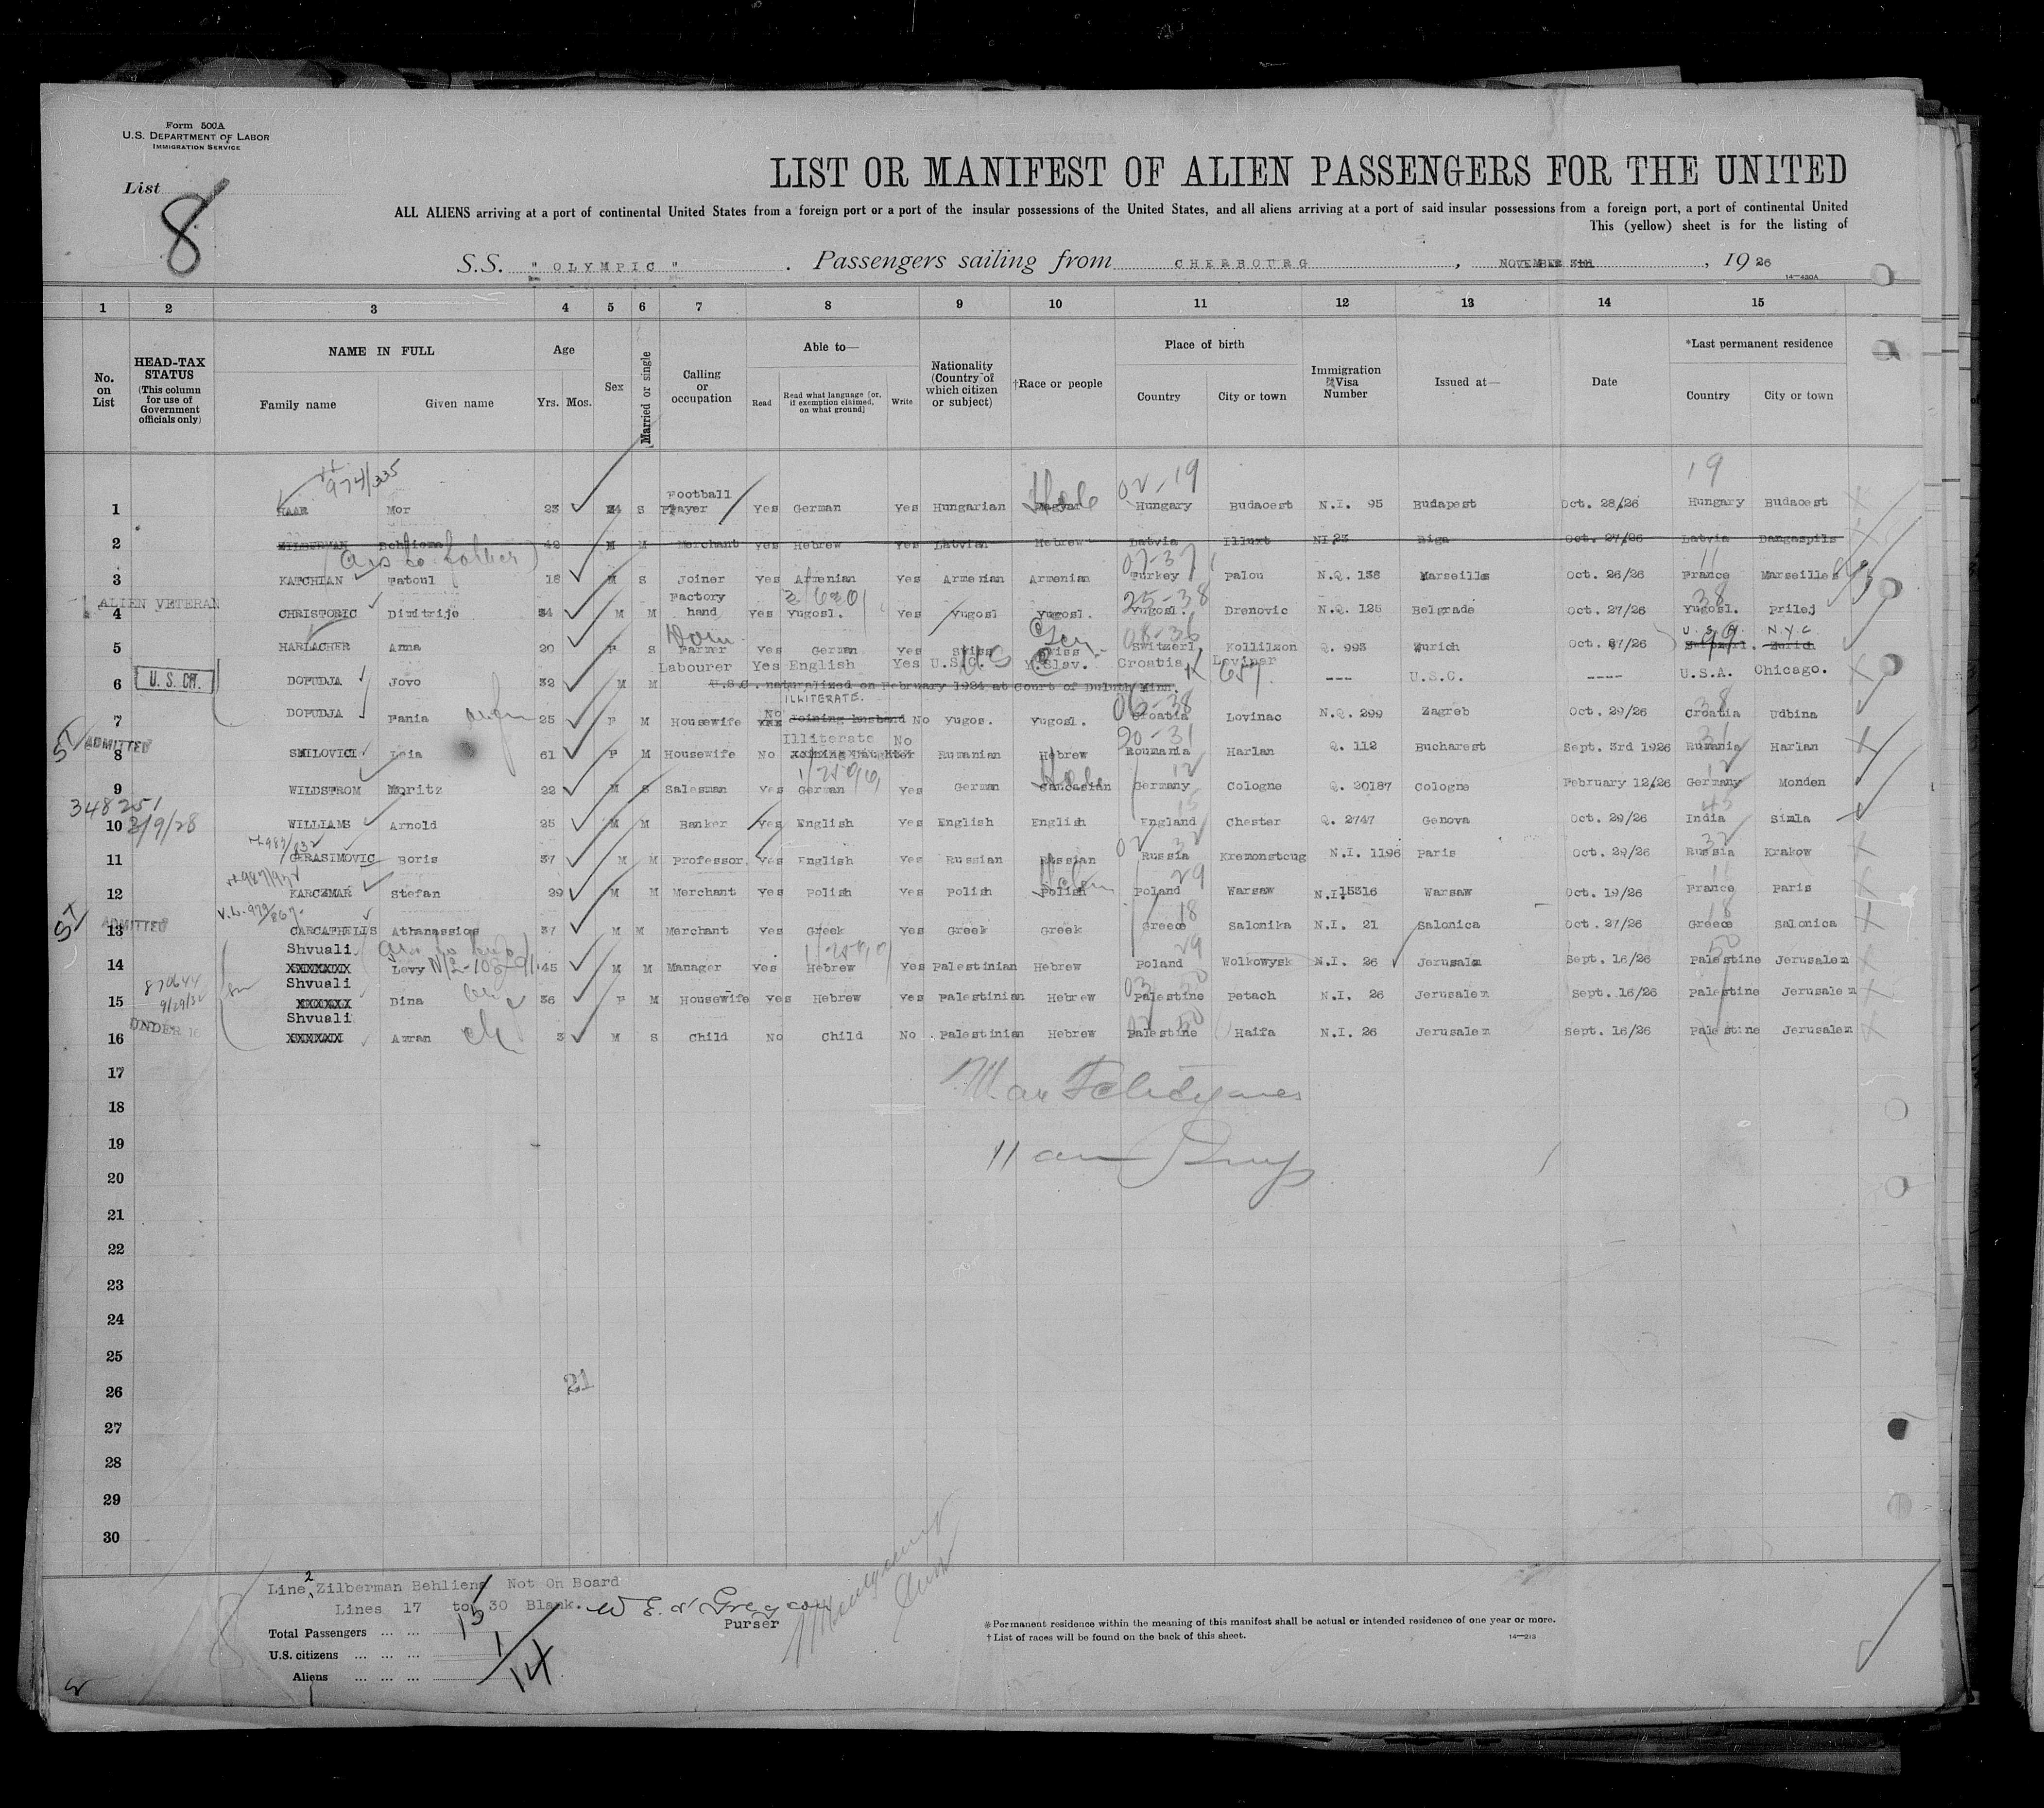 Form 500A
U.S. DEPARTMENT OF LABOR
IMMIGRATION SERVICE
List
8
LIST OR MANIFEST OF ALIEN PASSENGERS FOR THE UNITED
ALL ALIENS arriving at a port of continental United States from a foreign port or a port of the insular possessions of the United States, and all aliens arriving at a port of said insular possessions from a foreign port, a port of continental United
This (yellow) sheet is for the listing of
S.S. "OLYMPIC". Passengers sailing from CHERBOURG, NOVEMBER 3th, 1926
14—430A
1 2 3 4 5 6 7 8 9 10 11 12 13 14 15
No. on List
HEAD-TAX STATUS (This column for use of Government officials only)
NAME IN FULL Family name Given name
Age Yrs. Mos.
Sex
Married or single
Calling or occupation
Able to— Read Read what language [or, if exemption claimed, on what ground] Write
Nationality (Country of which citizen or subject)
†Race or people
Place of birth Country City or town
Immigration Visa Number
Issued at—
Date
*Last permanent residence Country City or town
974/335 02-19 19
1 HAAR Mor 23 M S Football Player Yes German Yes Hungarian Magyar Hungary Budapest N.I. 95 Budapest Oct. 28/26 Hungary Budapest
2 ZILBERMAN Behliena 42 M M Merchant Yes Hebrew Yes Latvian Hebrew Latvia Illuxt NI 23 Riga Oct. 27/26 Latvia Dangaspils
07-37 11
3 KATCHIAN Tatoul 18 M S Joiner Yes Armenian Yes Armenian Armenian Turkey Palou N.Q. 138 Marseille Oct. 26/26 France Marseilles
ALIEN VETERAN 25-38 38
4 CHRISTORIC Dimitrije 34 M M Factory hand Yes Yugosl. Yes Yugosl Yugosl. Yugosl. Drenovic N.Q. 125 Belgrade Oct. 27/26 Yugosl. Prilej
Dom Ger 08-36 U.S.A. N.Y.C
5 HARLACHER Anna 20 F S Farmer Yes German Yes Swiss Swiss Switzerl. Kollilzon Q. 993 Zurich Oct. 27/26 Switzerl. Zurich
U. S. CIT.
6 DOPUDJA Jovo 32 M M Labourer Yes English Yes U.S.C. Y.Slav. Croatia Lovinar --- U.S.C. ---- U.S.A. Chicago.
U.S.C. naturalized on February 1924 at Court of Duluth Minn.
ILLITERATE. 06-38 38
7 DOPUDJA Fania 25 F M Housewife No Joining husband No Yugos. Yugosl. Croatia Lovinac N.Q. 299 Zagreb Oct. 29/26 Croatia Udbina
ADMITTED Illiterate No 20-31 31
8 SMILOVICI Leia 61 F M Housewife No Joining Daughter Rumanian Hebrew Roumania Harlan Q. 112 Bucharest Sept. 3rd 1926 Rumania Harlan
12 12
9 WILDSTROM Moritz 22 M S Salesman Yes German Yes German Caucasian Germany Cologne Q. 20187 Cologne February 12/26 Germany Monden
348251 15 45
10 3/9/28 WILLIAMS Arnold 25 M M Banker Yes English Yes English English England Chester Q. 2747 Genova Oct. 29/26 India Simla
02 32 32
11 GERASIMOVIC Boris 37 M M Professor Yes English Yes Russian Russian Russia Kremonstoug N.I. 1196 Paris Oct. 29/26 Russia Krakow
29
12 KARCZMAR Stefan 29 M M Merchant Yes Polish Yes Polish Polish Poland Warsaw N.I. 15316 Warsaw Oct. 19/26 France Paris
ADMITTED V.L-979/867 18 18
13 CARCAPHELIS Athanassios 37 M M Merchant Yes Greek Yes Greek Greek Greece Salonika N.I. 21 Salonica Oct. 27/26 Greece Salonica
Shvuali 29 50
14 XXXXXXX Levy 45 M M Manager Yes Hebrew Yes Palestinian Hebrew Poland Wolkowysk N.I. 26 Jerusalem Sept. 16/26 Palestine Jerusalem
870644 9/29/32 Shvuali
15 XXXXXX Dina 36 F M Housewife Yes Hebrew Yes Palestinian Hebrew Palestine Petach N.I. 26 Jerusalem Sept. 16/26 Palestine Jerusalem
UNDER 16 Shvuali
16 XXXXXX Amran 3 M S Child No Child No Palestinian Hebrew Palestine Haifa N.I. 26 Jerusalem Sept. 16/26 Palestine Jerusalem
17
18
19
20
21
22
23
24
25
26
21
27
28
29
30
Line 2 Zilberman Behliena Not On Board
Lines 17 to 30 Blank.
Purser
Total Passengers 15
U.S. citizens 1
Aliens 14
*Permanent residence within the meaning of this manifest shall be actual or intended residence of one year or more.
†List of races will be found on the back of this sheet.
14—213